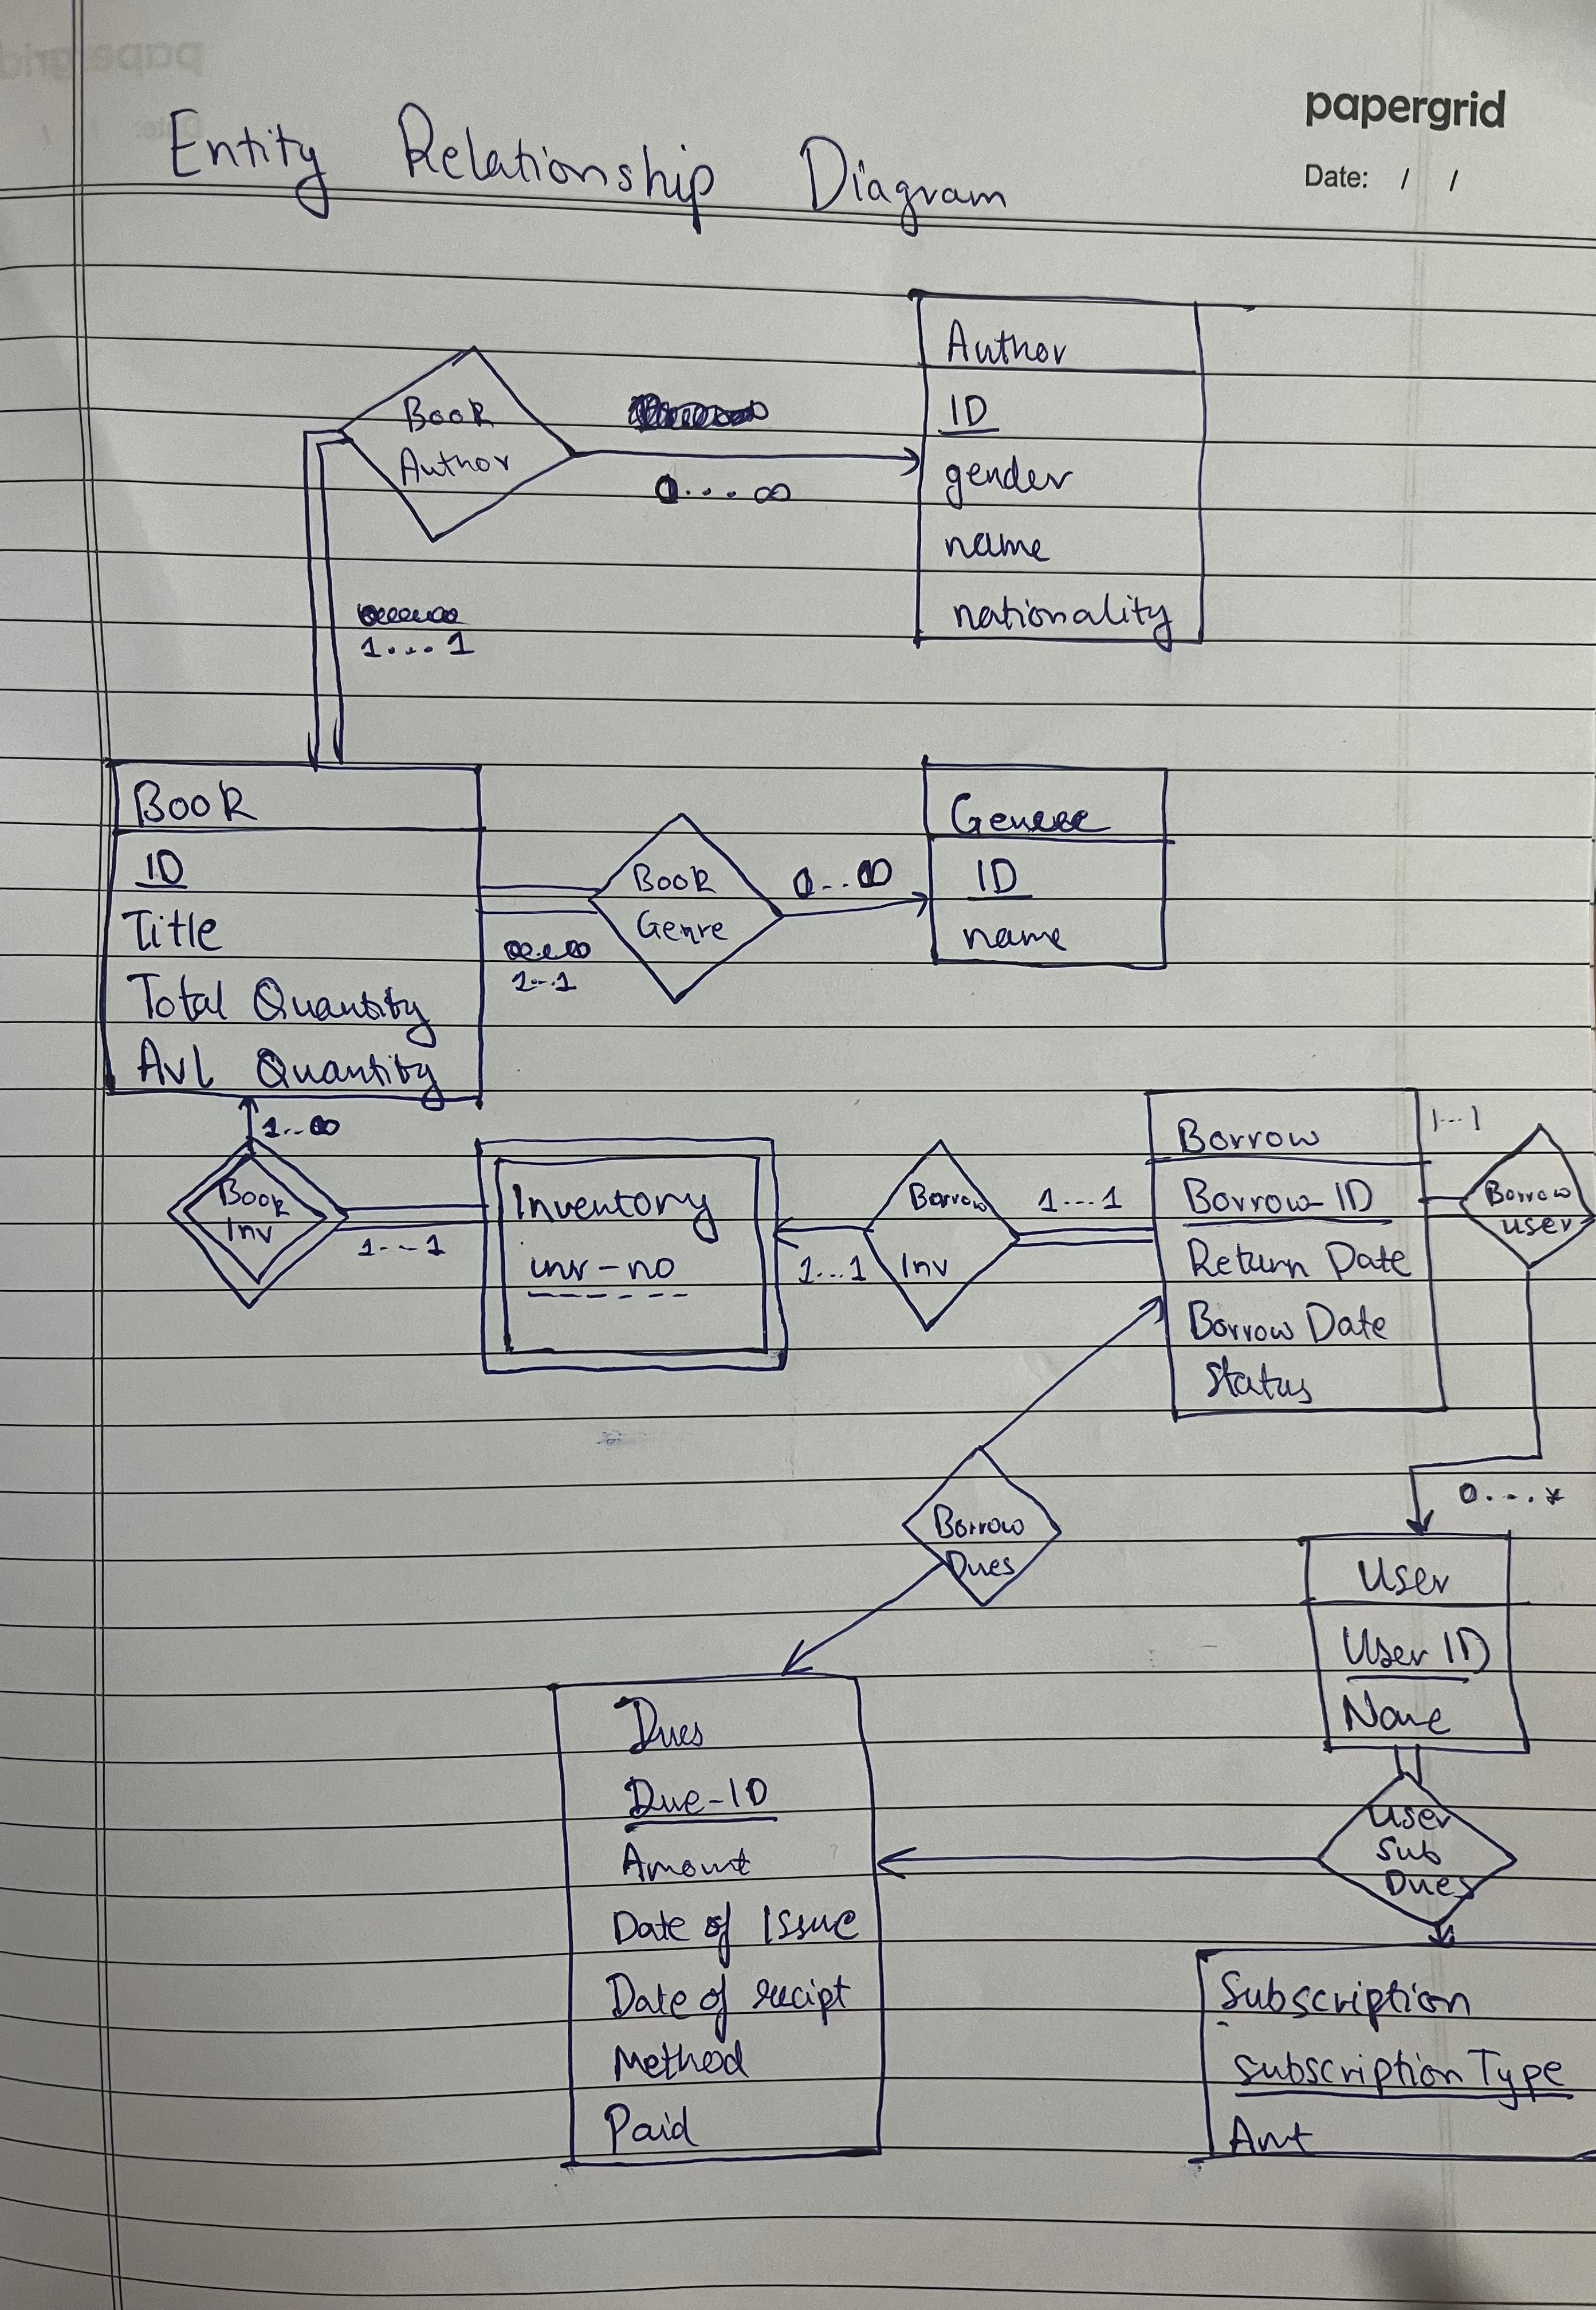 papergrid
Date: / /
Entity Relationship Diagram
Author
ID
gender
name
nationality
Book
Author
0....∞
1....1
Book
ID
Title
Total Quantity
Avl Quantity
Book
Genre
0...∞
1...1
ID
name
1...∞
Book
Inv
1...1
Inventory
inv-no
Borrow
Inv
1...1
1....1
Borrow
Borrow-ID
Return Date
Borrow Date
Status
1...1
Borrow
user
0....*
Borrow
Dues
User
User ID
Name
User
Sub
Dues
Dues
Due-ID
Amount
Date of Issue
Date of recipt
Method
Paid
Subscription
subscription Type
Amt